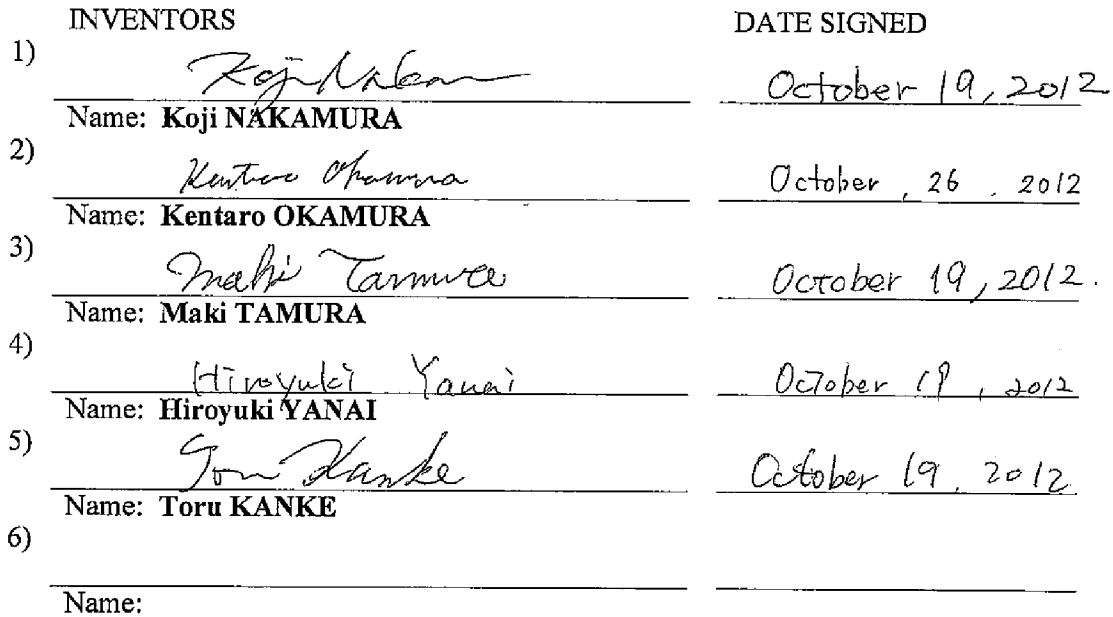 INVENTORS DATE SIGNED
1) Koji Nakam October 19, 2012
Name: Koji NAKAMURA
2) Kentaro Okamura October, 26. 2012
Name: Kentaro OKAMURA
3) Maki Tamura October 19, 2012.
Name: Maki TAMURA
4) Hiroyuki Yanai October 19, 2012
Name: Hiroyuki YANAI
5) Toru Kanke October 19. 2012
Name: Toru KANKE
6)
Name: